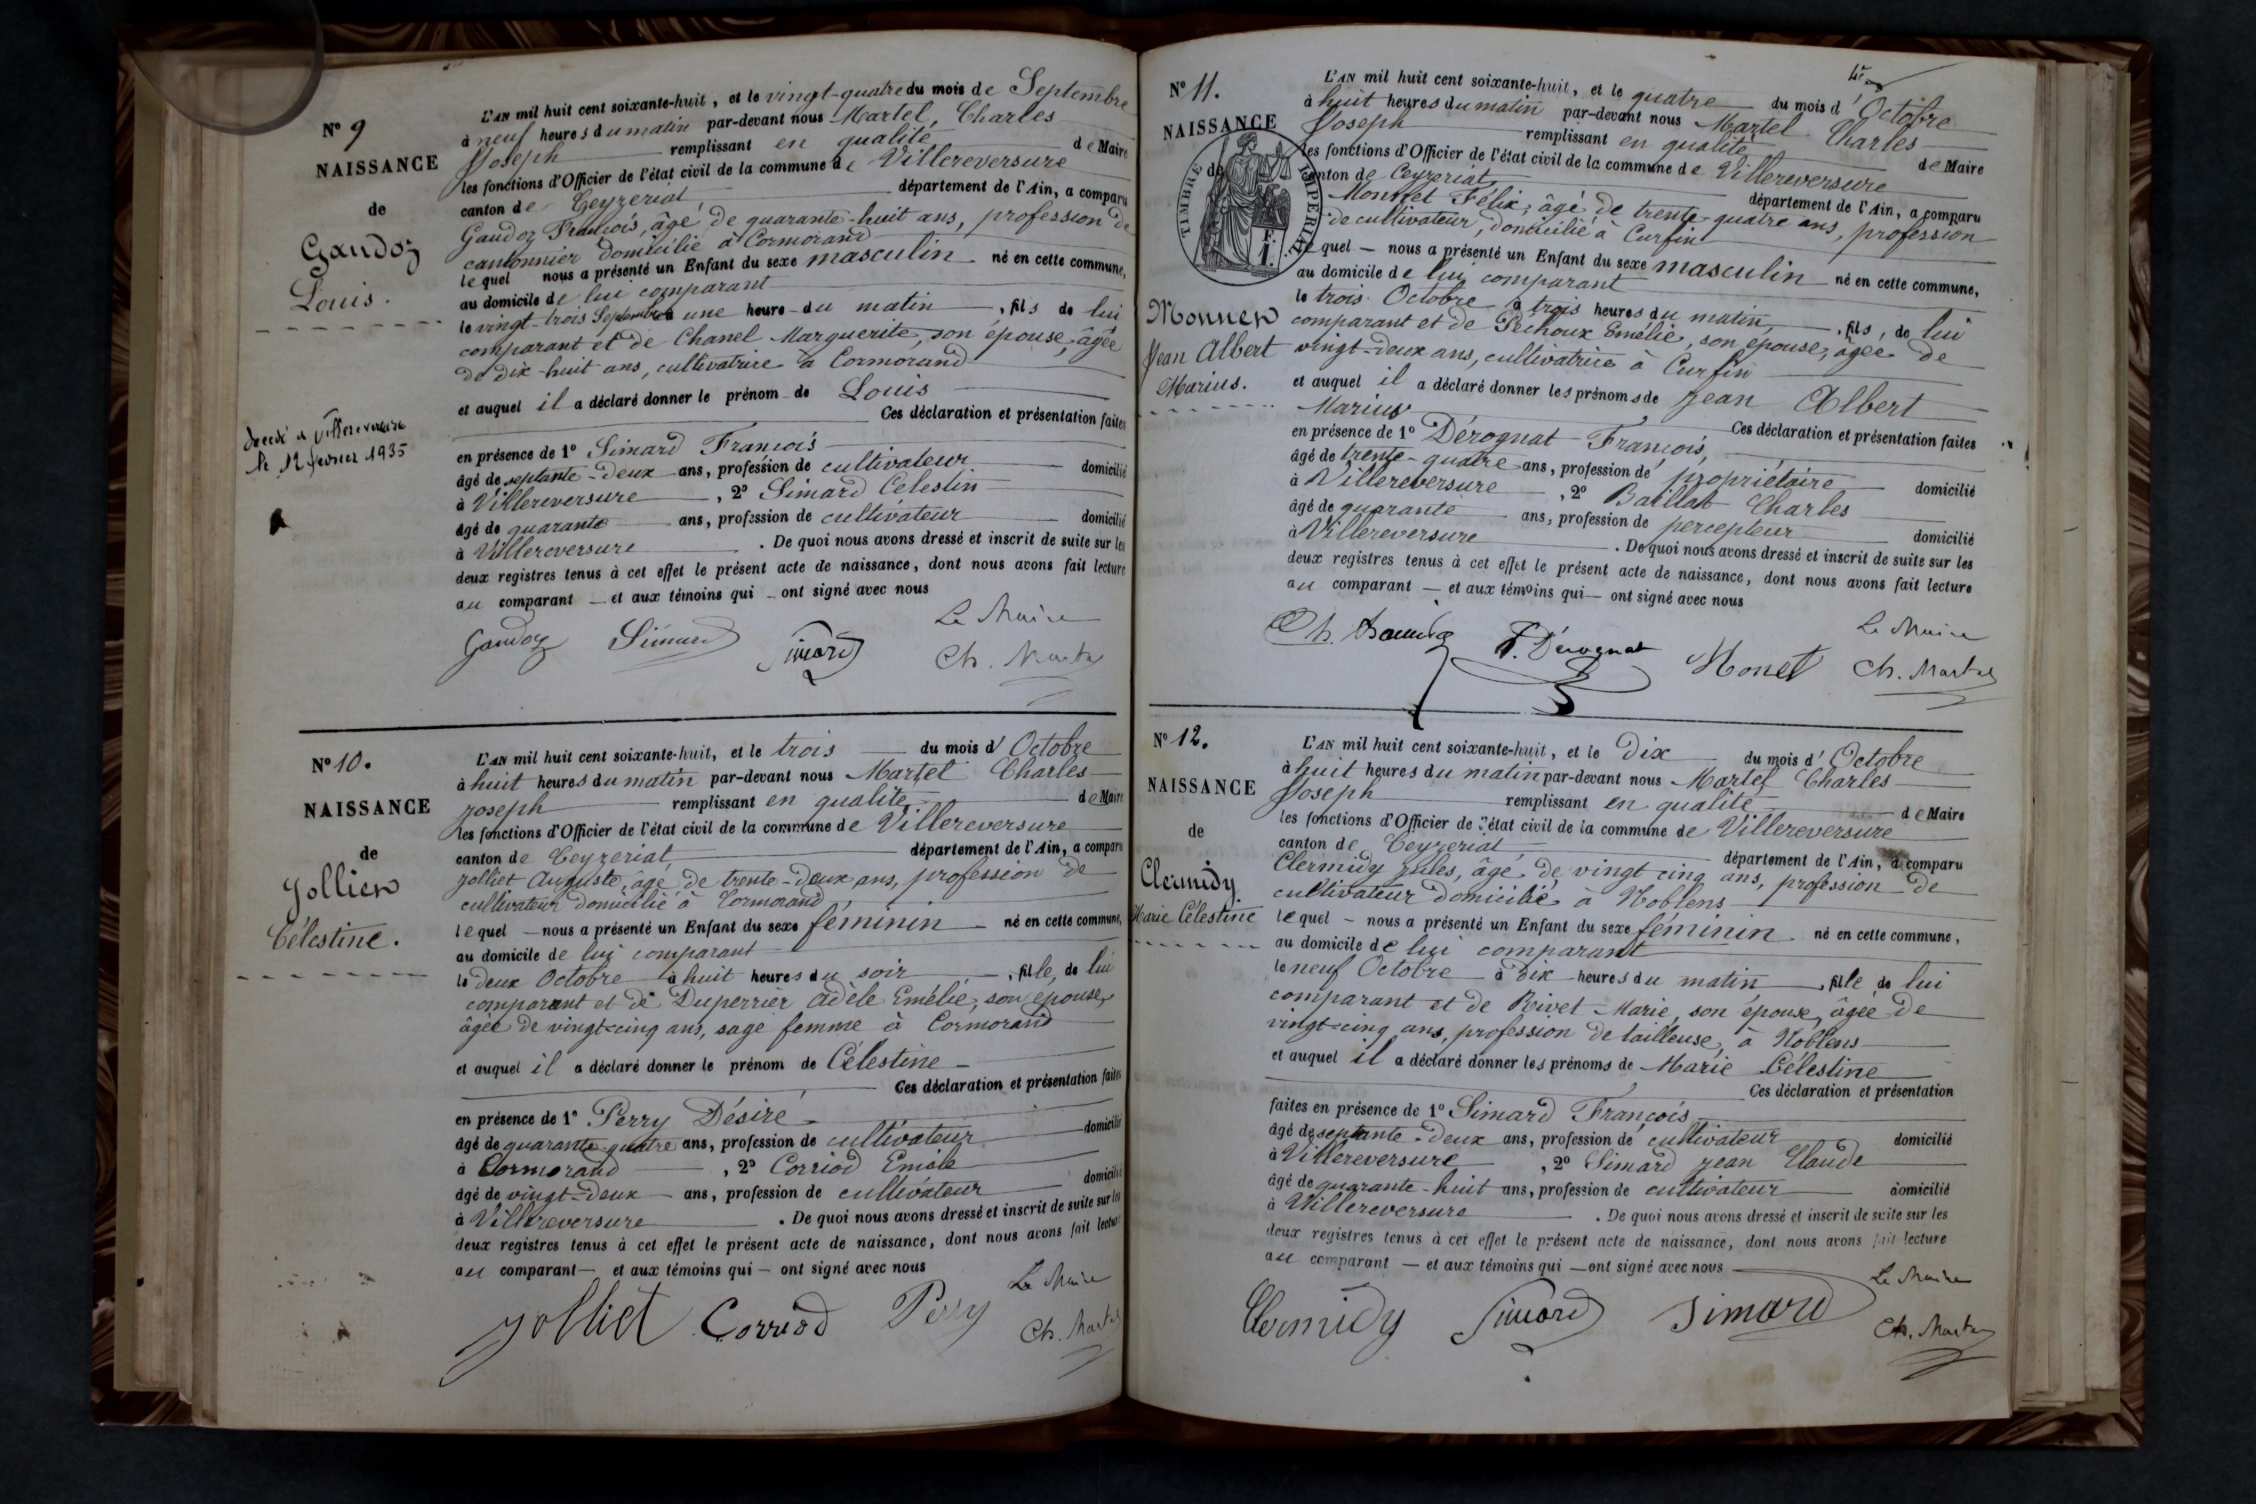 N° 9
NAISSANCE
de
Gaudoz
Louis.
décédé à Villereversure
le 12 février 1935
L'AN mil huit cent soixante-huit, et le vingt-quatre du mois de Septembre
à neuf heures du matin par-devant nous Martel, Charles
Joseph remplissant en qualité de Maire
les fonctions d'Officier de l'état civil de la commune de Villereversure
canton de Ceyzeriat département de l'Ain, a comparu
Gaudoz François, âgé de quarante-huit ans, profession de
cantonnier domicilié à Cormorand
lequel nous a présenté un Enfant du sexe masculin né en cette commune,
au domicile de lui comparant
le vingt-trois Septembre à une heure du matin, fils de lui
comparant et de Chanel Marguerite, son épouse, âgée
de dix-huit ans, cultivatrice à Cormorand
et auquel il a déclaré donner le prénom de Louis
Ces déclaration et présentation faites
en présence de 1° Simard François
âgé de septante-deux ans, profession de cultivateur domicilié
à Villereversure, 2° Simard Célestin
âgé de quarante ans, profession de cultivateur domicilié
à Villereversure. De quoi nous avons dressé et inscrit de suite sur les
deux registres tenus à cet effet le présent acte de naissance, dont nous avons fait lecture
au comparant et aux témoins qui ont signé avec nous
Le Maire
Gaudoz Simard Simard Ch. Martel
N° 10.
NAISSANCE
de
Jolliet
Célestine.
L'AN mil huit cent soixante-huit, et le trois du mois d'Octobre
à huit heures du matin par-devant nous Martel Charles
Joseph remplissant en qualité de Maire
les fonctions d'Officier de l'état civil de la commune de Villereversure
canton de Ceyzeriat département de l'Ain, a comparu
Jolliet Auguste, âgé de trente-deux ans, profession de
cultivateur domicilié à Cormorand
lequel nous a présenté un Enfant du sexe féminin né en cette commune,
au domicile de lui comparant
le deux Octobre à huit heures du soir, fille, de lui
comparant et de Duperrier Adèle Emélie, son épouse,
âgée de vingt-cinq ans, sage femme à Cormorand
et auquel il a déclaré donner le prénom de Célestine
Ces déclaration et présentation faites
en présence de 1° Perry Désiré
âgé de quarante-quatre ans, profession de cultivateur domicilié
à Cormorand, 2° Corriod Emile
âgé de vingt-deux ans, profession de cultivateur domicilié
à Villereversure. De quoi nous avons dressé et inscrit de suite sur les
deux registres tenus à cet effet le présent acte de naissance, dont nous avons fait lecture
au comparant et aux témoins qui ont signé avec nous
Le Maire
Jolliet Corriod Perry Ch. Martel
N° 11.
NAISSANCE
de
TIMBRE IMPERIAL
1 F.
Monnet
Jean Albert
Marius.
L'AN mil huit cent soixante-huit, et le quatre du mois d'Octobre
à huit heures du matin par-devant nous Martel Charles
Joseph remplissant en qualité de Maire
les fonctions d'Officier de l'état civil de la commune de Villereversure
canton de Ceyzeriat département de l'Ain, a comparu
Monnet Félix, âgé de trente-quatre ans, profession
de cultivateur, domicilié à Curfin
lequel nous a présenté un Enfant du sexe masculin né en cette commune,
au domicile de lui comparant
le trois Octobre à trois heures du matin, fils, de lui
comparant et de Péchoux Emélie, son épouse, âgée de
vingt-deux ans, cultivatrice à Curfin
et auquel il a déclaré donner les prénoms de Jean Albert
Marius
Ces déclaration et présentation faites
en présence de 1° Dérognat François,
âgé de trente-quatre ans, profession de propriétaire domicilié
à Villereversure, 2° Baillat Charles
âgé de quarante ans, profession de percepteur domicilié
à Villereversure. De quoi nous avons dressé et inscrit de suite sur les
deux registres tenus à cet effet le présent acte de naissance, dont nous avons fait lecture
au comparant et aux témoins qui ont signé avec nous
Le Maire
Ch. F. Dérognat Monet Ch. Martel
N° 12.
NAISSANCE
de
Clermidy
Marie Célestine
L'AN mil huit cent soixante-huit, et le dix du mois d'Octobre
à huit heures du matin par-devant nous Martel Charles
Joseph remplissant en qualité de Maire
les fonctions d'Officier de l'état civil de la commune de Villereversure
canton de Ceyzeriat département de l'Ain, a comparu
Clermidy Jules, âgé de vingt cinq ans, profession de
cultivateur domicilié à Noblens
lequel nous a présenté un Enfant du sexe féminin né en cette commune,
au domicile de lui comparant
le neuf Octobre à dix heures du matin, fille de lui
comparant et de Roivet Marie, son épouse, âgée de
vingt-cinq ans, profession de tailleuse, à Noblens
et auquel il a déclaré donner les prénoms de Marie Célestine
Ces déclaration et présentation
faites en présence de 1° Simard François
âgé de septante-deux ans, profession de cultivateur domicilié
à Villereversure, 2° Simard Jean Claude
âgé de quarante-huit ans, profession de cultivateur domicilié
à Villereversure. De quoi nous avons dressé et inscrit de suite sur les
deux registres tenus à cet effet le présent acte de naissance, dont nous avons fait lecture
au comparant et aux témoins qui ont signé avec nous
Le Maire
Clermidy Simard Simard Ch. Martel